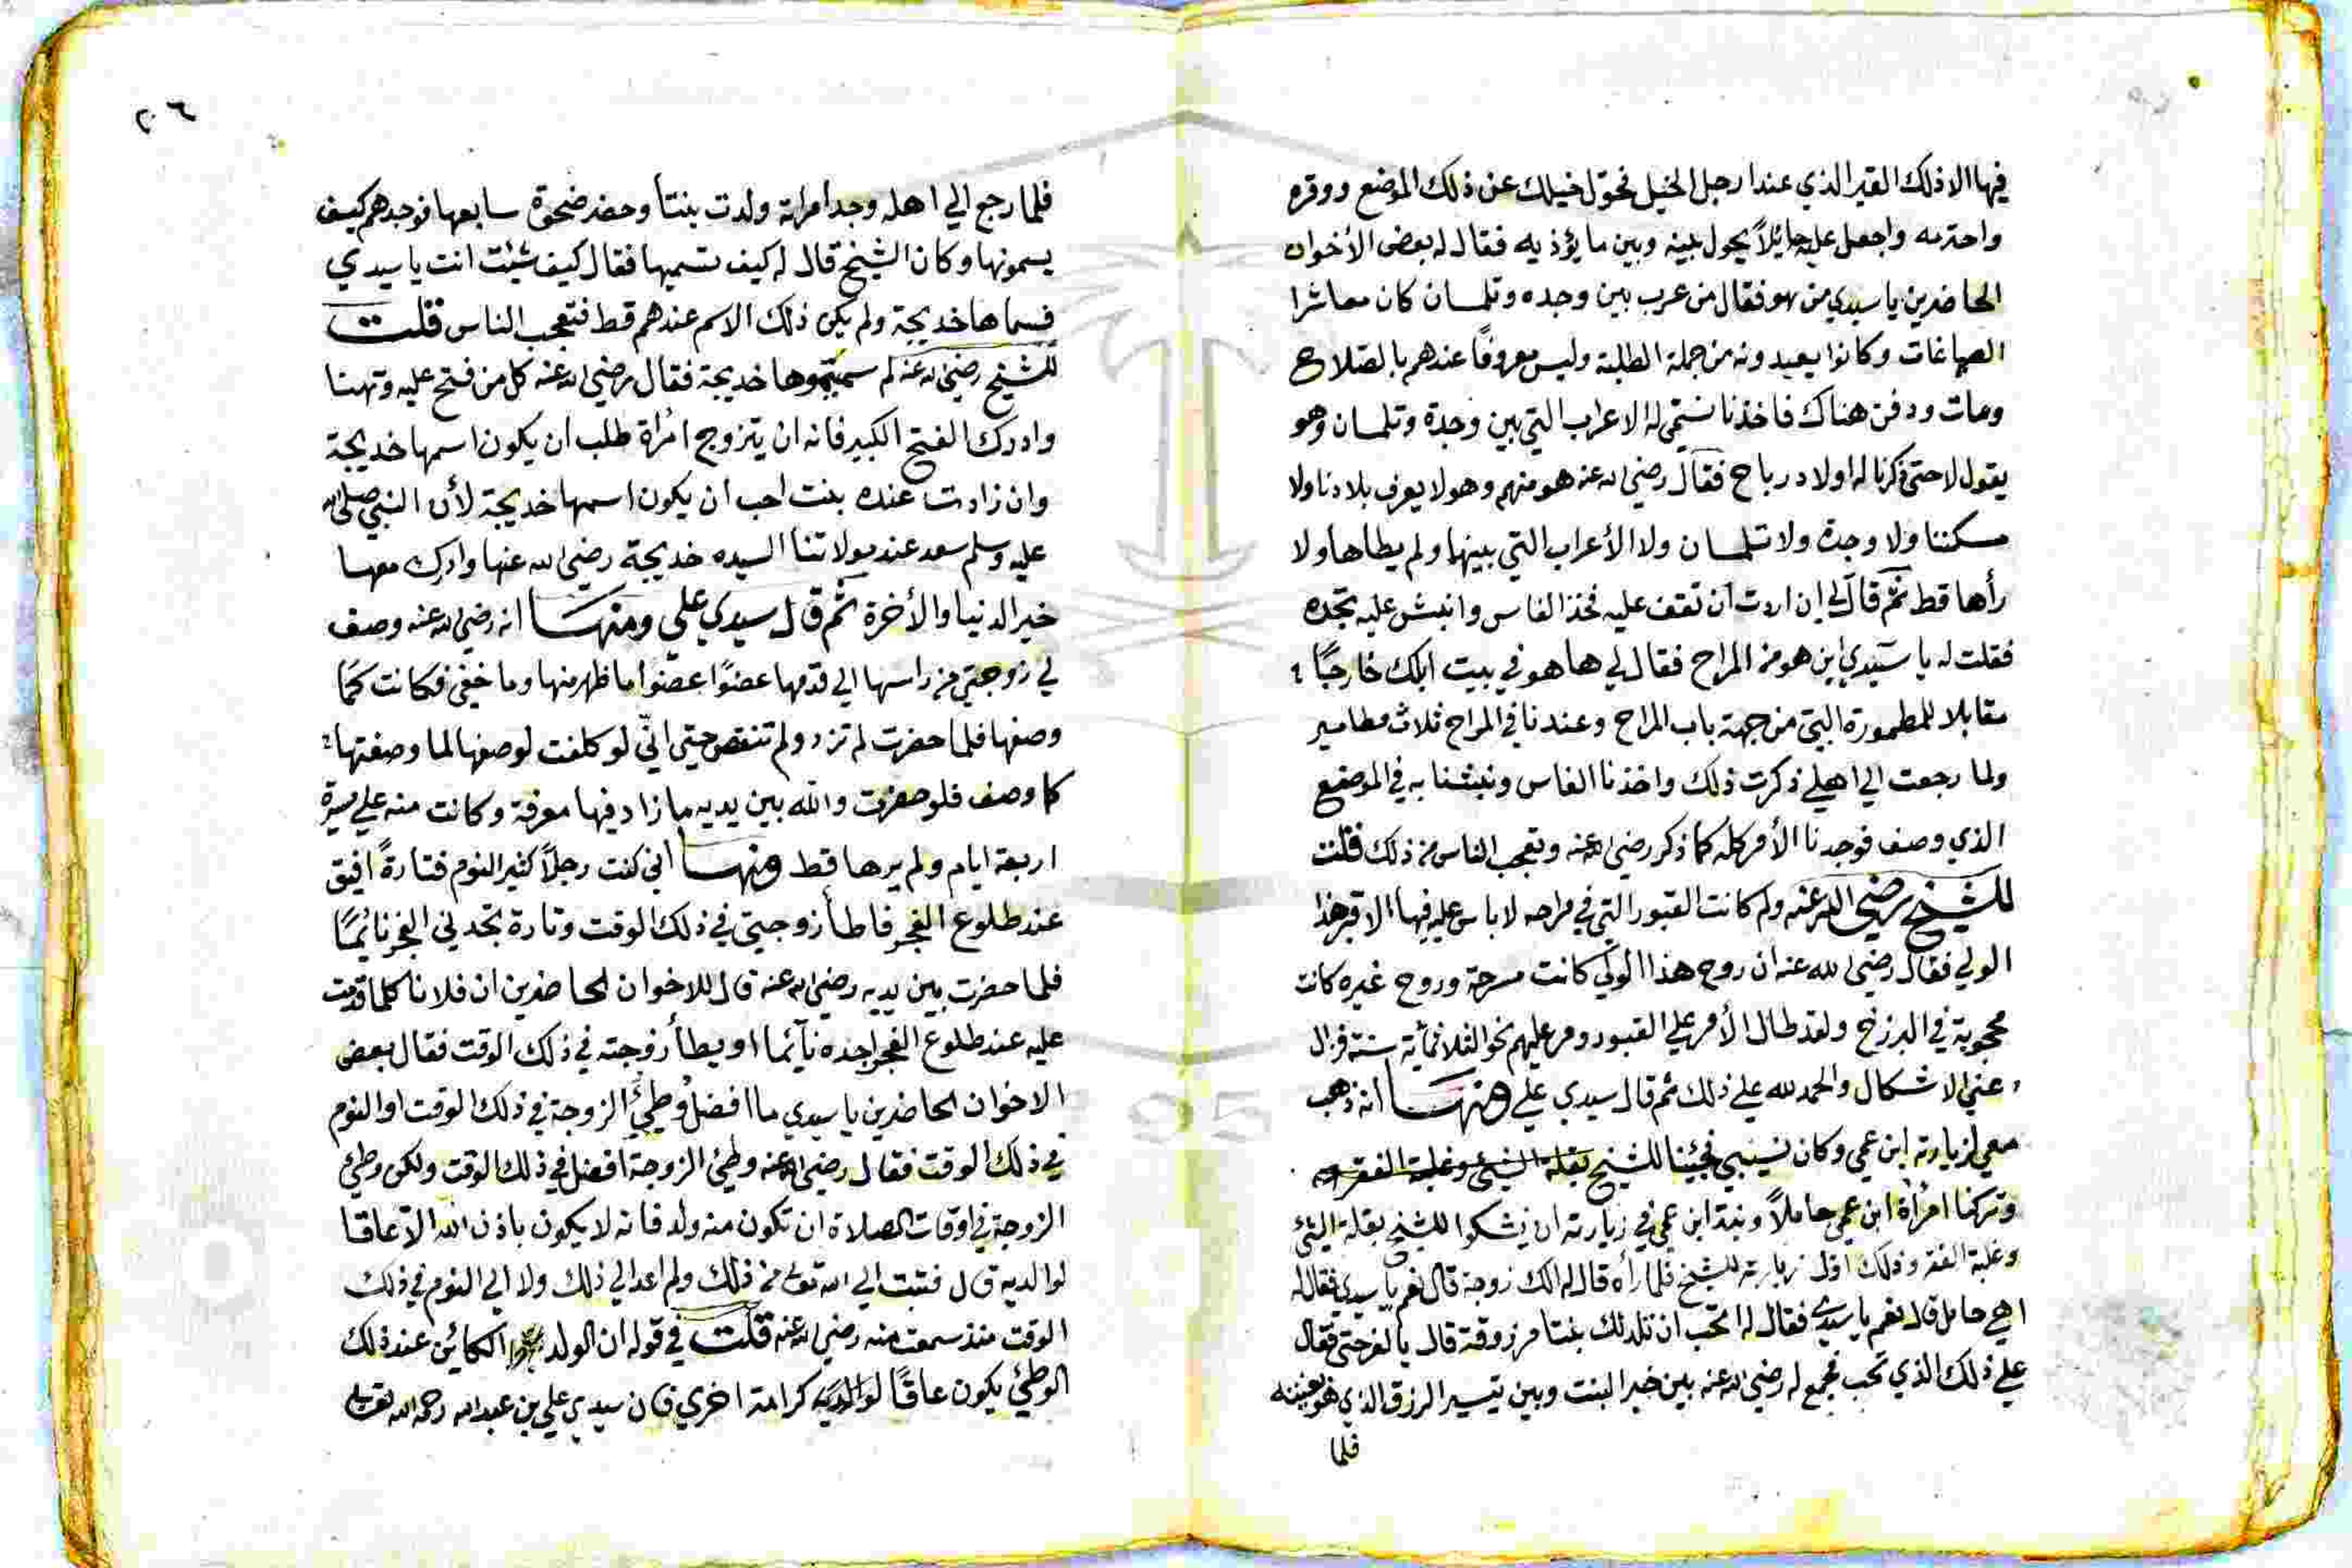 فيها الا ذلك القبر الذي عند ارجل الخيل فحول خيلك عن ذلك الموضع ووقره
واحترمه واجعل عليه حايلاً يحول بينه وبين ما يؤذيه فقال له بعض الأخوان
الحاضرين يا سيدي من هو فقال من عرب بين وجده وتلمسان كان معاشرا
الصباغات وكانوا يعيدونه من جملة الطلبة وليس معروفاً عندهم بالصّلاح
ومات ودفن هناك فاخذنا نسمي له الاعراب التي بين وجدة وتلمسان وهو
يقول لا حتى ذكرنا له اولاد رباح فقال رضي الله عنه هو منهم وهو لا يعرف بلادنا ولا
مسكننا ولا وجدة ولا تلمسان ولا الأعراب التي بينها ولم يطاها ولا
رأها قط ثم قال لي ان اردت ان تقف عليه فخذ الفاس وانبش عليه تجده
فقلت له يا سيدي اين هو من المراح فقال لي ها هو في بيت ابيك خارجًا
مقابلا للمطمورة التي من جهة باب المراح وعندنا في المراح ثلاث مطامير
ولما رجعت الي اهلي ذكرت ذلك واخذنا الفاس ونبشنا به في الموضع
الذي وصف فوجدنا الأمر كله كما ذكر رضي الله عنه وتعجب الناس من ذلك قلت
للشيخ رضي الله عنه ولم كانت القبور التي في مراحه لا باس عليه فيها الا قبر هذا
الولي فقال رضي الله عنه ان روح هذا الولي كانت مسرحة وروح غيره كانت
محجوبة في البرزخ ولقد طال الأمر علي القبور ومر عليهم نحو الثلاثمائة سنة فزال
عني الاشكال والحمد لله علي ذلك ثم قال سيدي علي ومنها انه ذهب
معي لزيارته ابن عمي وكان نسيبي فجئنا للشيخ بقلة الشيئ وغلبة الفقر
وتركنا امرأة ابن عمي حاملاً ونية ابن عمي في زيارته ان يشكوا للشيخ بقلة الشئ
وغلبة الفقر وذلك اول زيارته للشيخ فلما رأه قال له الك زوجة قال نعم يا سيدي فقال له
اهي حامل قال نعم يا سيدي فقال له اتحب ان تلد لك بنتا مرزوقة قال يا الفرحتي فقال
علي ذلك الذي تحب فجمع له رضي الله عنه بين خبر البنت وبين تيسير الرزق الذي هو بغيته
فلما
٢٠٦
فلما رجع الي اهله وجد امراته ولدت بنتا وحضر ضحوة سابعها فوجدهم كيف
يسمونها وكان الشيخ قال له كيف تسميها فقال كيف شئت انت يا سيدي
فسماها خديجة ولم يكن ذلك الاسم عندهم قط فتعجب الناس قلت
للشيخ رضي الله عنه لم سميتموها خديجة فقال رضي الله عنه كل من فتح عليه وتهنا
وادرك الفتح الكبير فانه ان يتزوج امرأة طلب ان يكون اسمها خديجة
وان زادت عنده بنت احب ان يكون اسمها خديجة لأن النبي صلى الله
عليه وسلم سعد عند مولاتنا السيده خديجة رضي الله عنها وادرك معها
خير الدنيا والأخرة ثم قال سيدي علي ومنها انه رضي الله عنه وصف
لي زوجتي من راسها الي قدمها عضوًا عضوا ما ظهر منها وما خفي فكانت كما
وصفها فلما حضرت لم تزد ولم تنقص حتى انّي لو كلفت لوصفها لما وصفتها
كما وصف فلو حضرت والله بين يديه ما زاد فيها معرفة وكانت منه علي مسيرة
اربعة ايام ولم يرها قط ومنها اني كنت رجلاً كثير النوم فتارةً افيق
عند طلوع الفجر فاطأ زوجتي في ذلك الوقت وتارة تجدني الفجر نائمًا
فلما حضرت بين يديه رضي الله عنه قال للاخوان الحاضرين ان فلانا كلما قدمت
عليه عند طلوع الفجر اجده نآئما او يطأ زوجته في ذلك الوقت فقال بعض
الاخوان الحاضرين يا سيدي ما افضل وطيُ الزوجة في ذلك الوقت او النوم
في ذلك الوقت فقال رضي الله عنه وطيُ الزوجة افضل في ذلك الوقت ولكن وطي
الزوجة في اوقات الصلاة ان تكون منه ولد فانه لا يكون باذن الله الا عاقا
لوالديه قال فتبت الي الله تعالى من ذلك ولم اعد الي ذلك ولا الي النوم في ذلك
الوقت منذ سمعت منه رضي الله عنه قلت في قوله ان الولد الكائن عند ذلك
الوطئ يكون عاقًا لوالديه كرامة اخري فان سيدي علي بن عبد الله رحمه الله تعالى